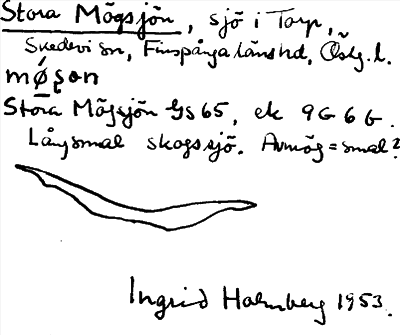 Stora Mögsjön, sjö i Torp,
Skedevi sn, Finspånga länshd, Östg. l.
Stora Mögsjön GS65, ek 9G 6b.
Långsmal skogssjö. Avmög = smal?
Ingrid Holmberg 1953.